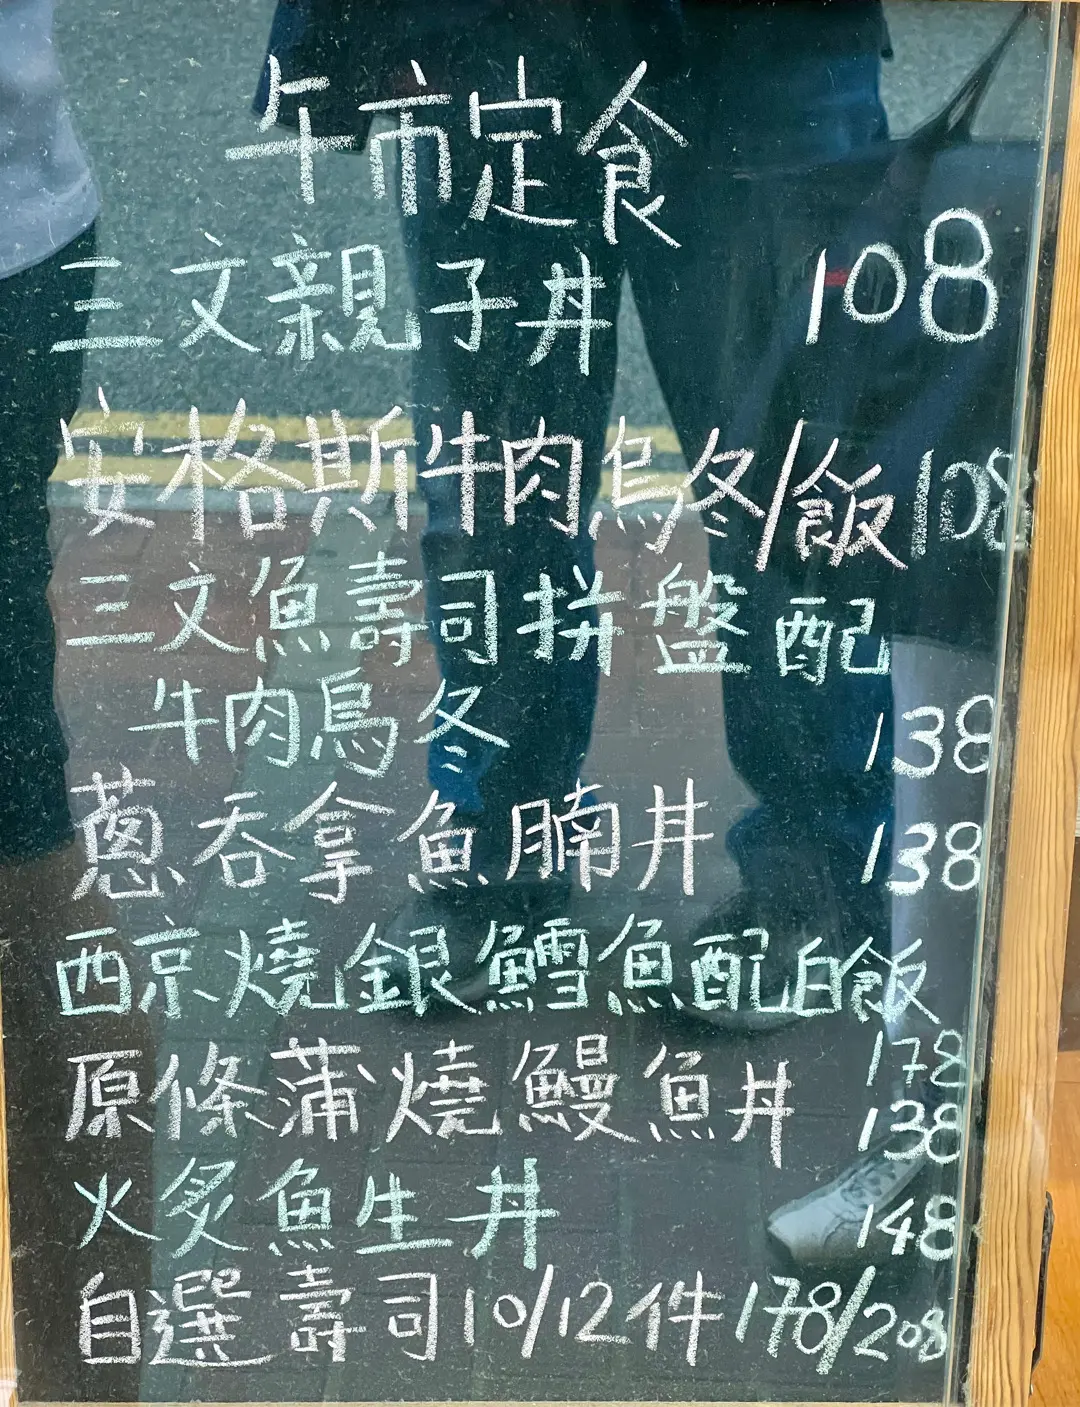 午市定食
三文親子丼 108
安格斯牛肉烏冬/飯 108
三文魚壽司拼盤配
牛肉烏冬 138
蔥吞拿魚腩丼 138
西京燒銀鱈魚配白飯
178
原條蒲燒鰻魚丼 138
火炙魚生丼 148
自選壽司10/12件 178/208